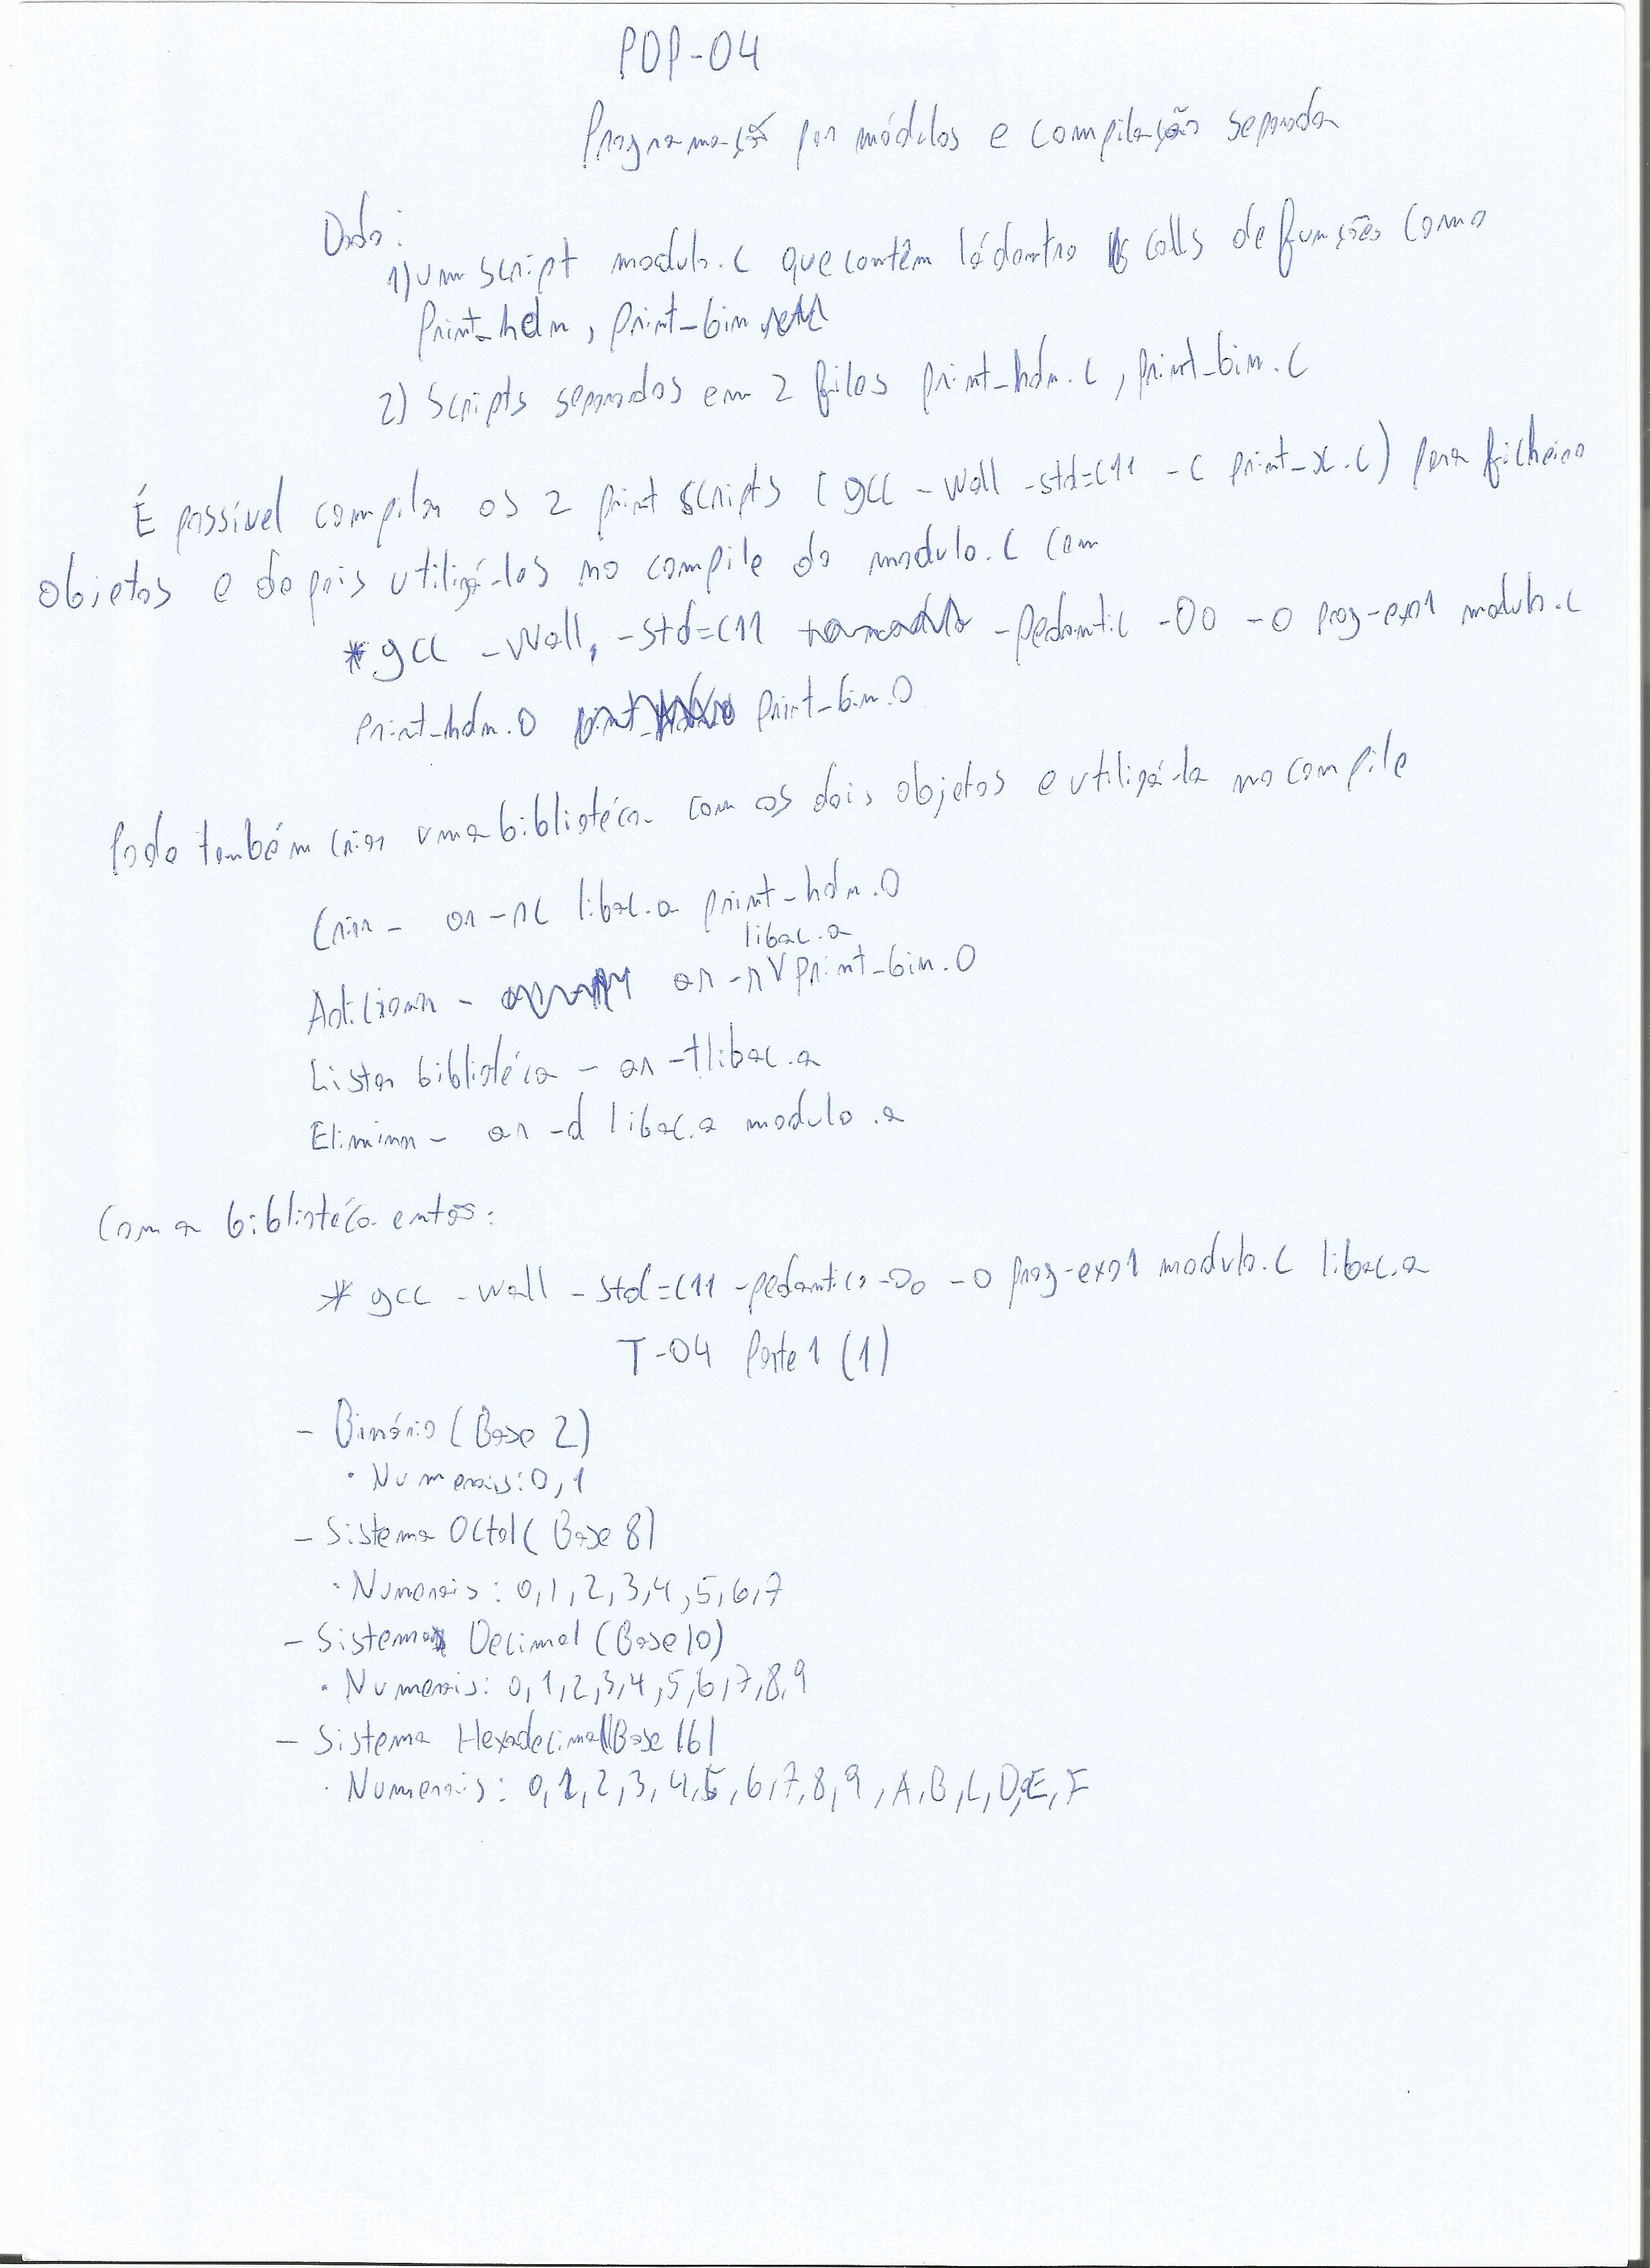 PDP-04
Programação por módulos e compilação separada
Dado:
1) um script modulo.c que contêm lá dentro calls de funções como
print_hdr, print_bin
2) Scripts separados em 2 files print_hdr.c, print_bin.c
É possível compilar os 2 print scripts (gcc -Wall -std=c11 -c print_x.c) para ficheiro
objetos e depois utilizá-los no compile do modulo.c com
* gcc -Wall, -std=c11 -pedantic -O0 -o prog-exo1 modulo.c
print_hdr.o print_bin.o
Pode também criar uma bibliotéca com os dois objetos e utilizá-la no compile
Criar - ar -rc libac.a print_hdr.o
libac.a
Adicionar - ar -r V print_bin.o
Listar bibliotéca - ar -t libac.a
Eliminar - ar -d libac.a modulo.a
Com a bibliotéca então:
* gcc -wall -std=c11 -pedantics -O0 -o prog-exo1 modulo.c libac.a
T-04 Parte 1 (1)
- Binário (Base 2)
• Numerais: 0,1
- Sistema Octal (Base 8)
• Numerais: 0,1,2,3,4,5,6,7
- Sistema Decimal (Base 10)
• Numerais: 0,1,2,3,4,5,6,7,8,9
- Sistema Hexadecimal (Base 16)
• Numerais: 0,1,2,3,4,5,6,7,8,9,A,B,C,D,E,F